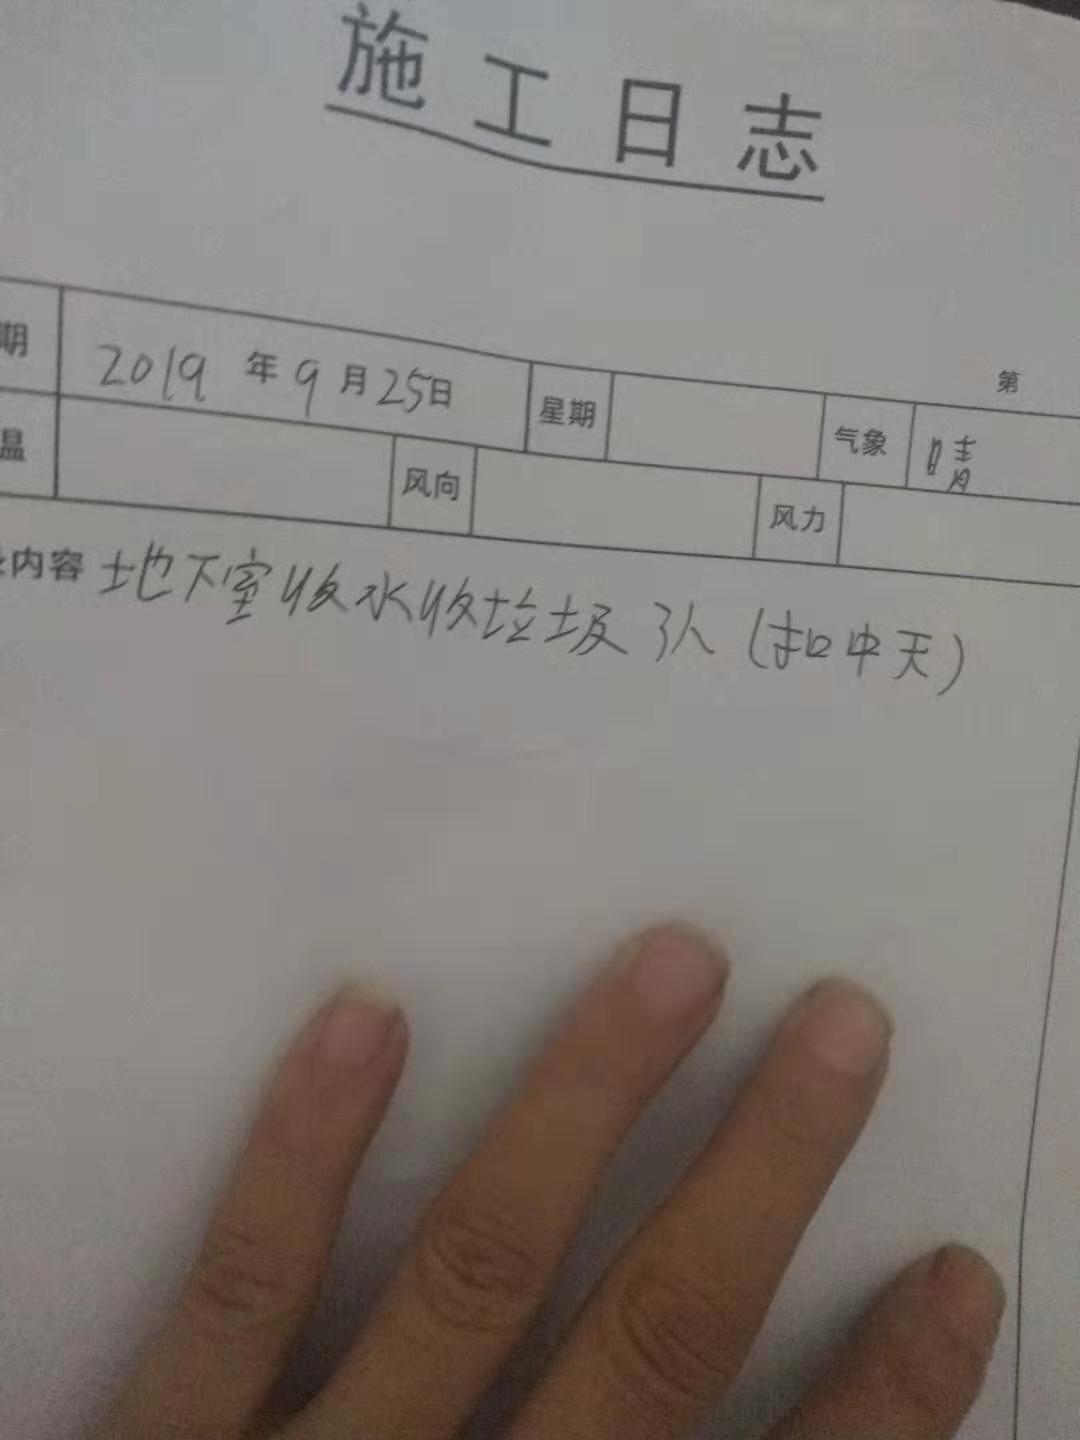 施工日志
第
期 2019年9月25日 星期 气象 晴
温 风向 风力
内容 地下室收水收垃圾3人(扣中天)